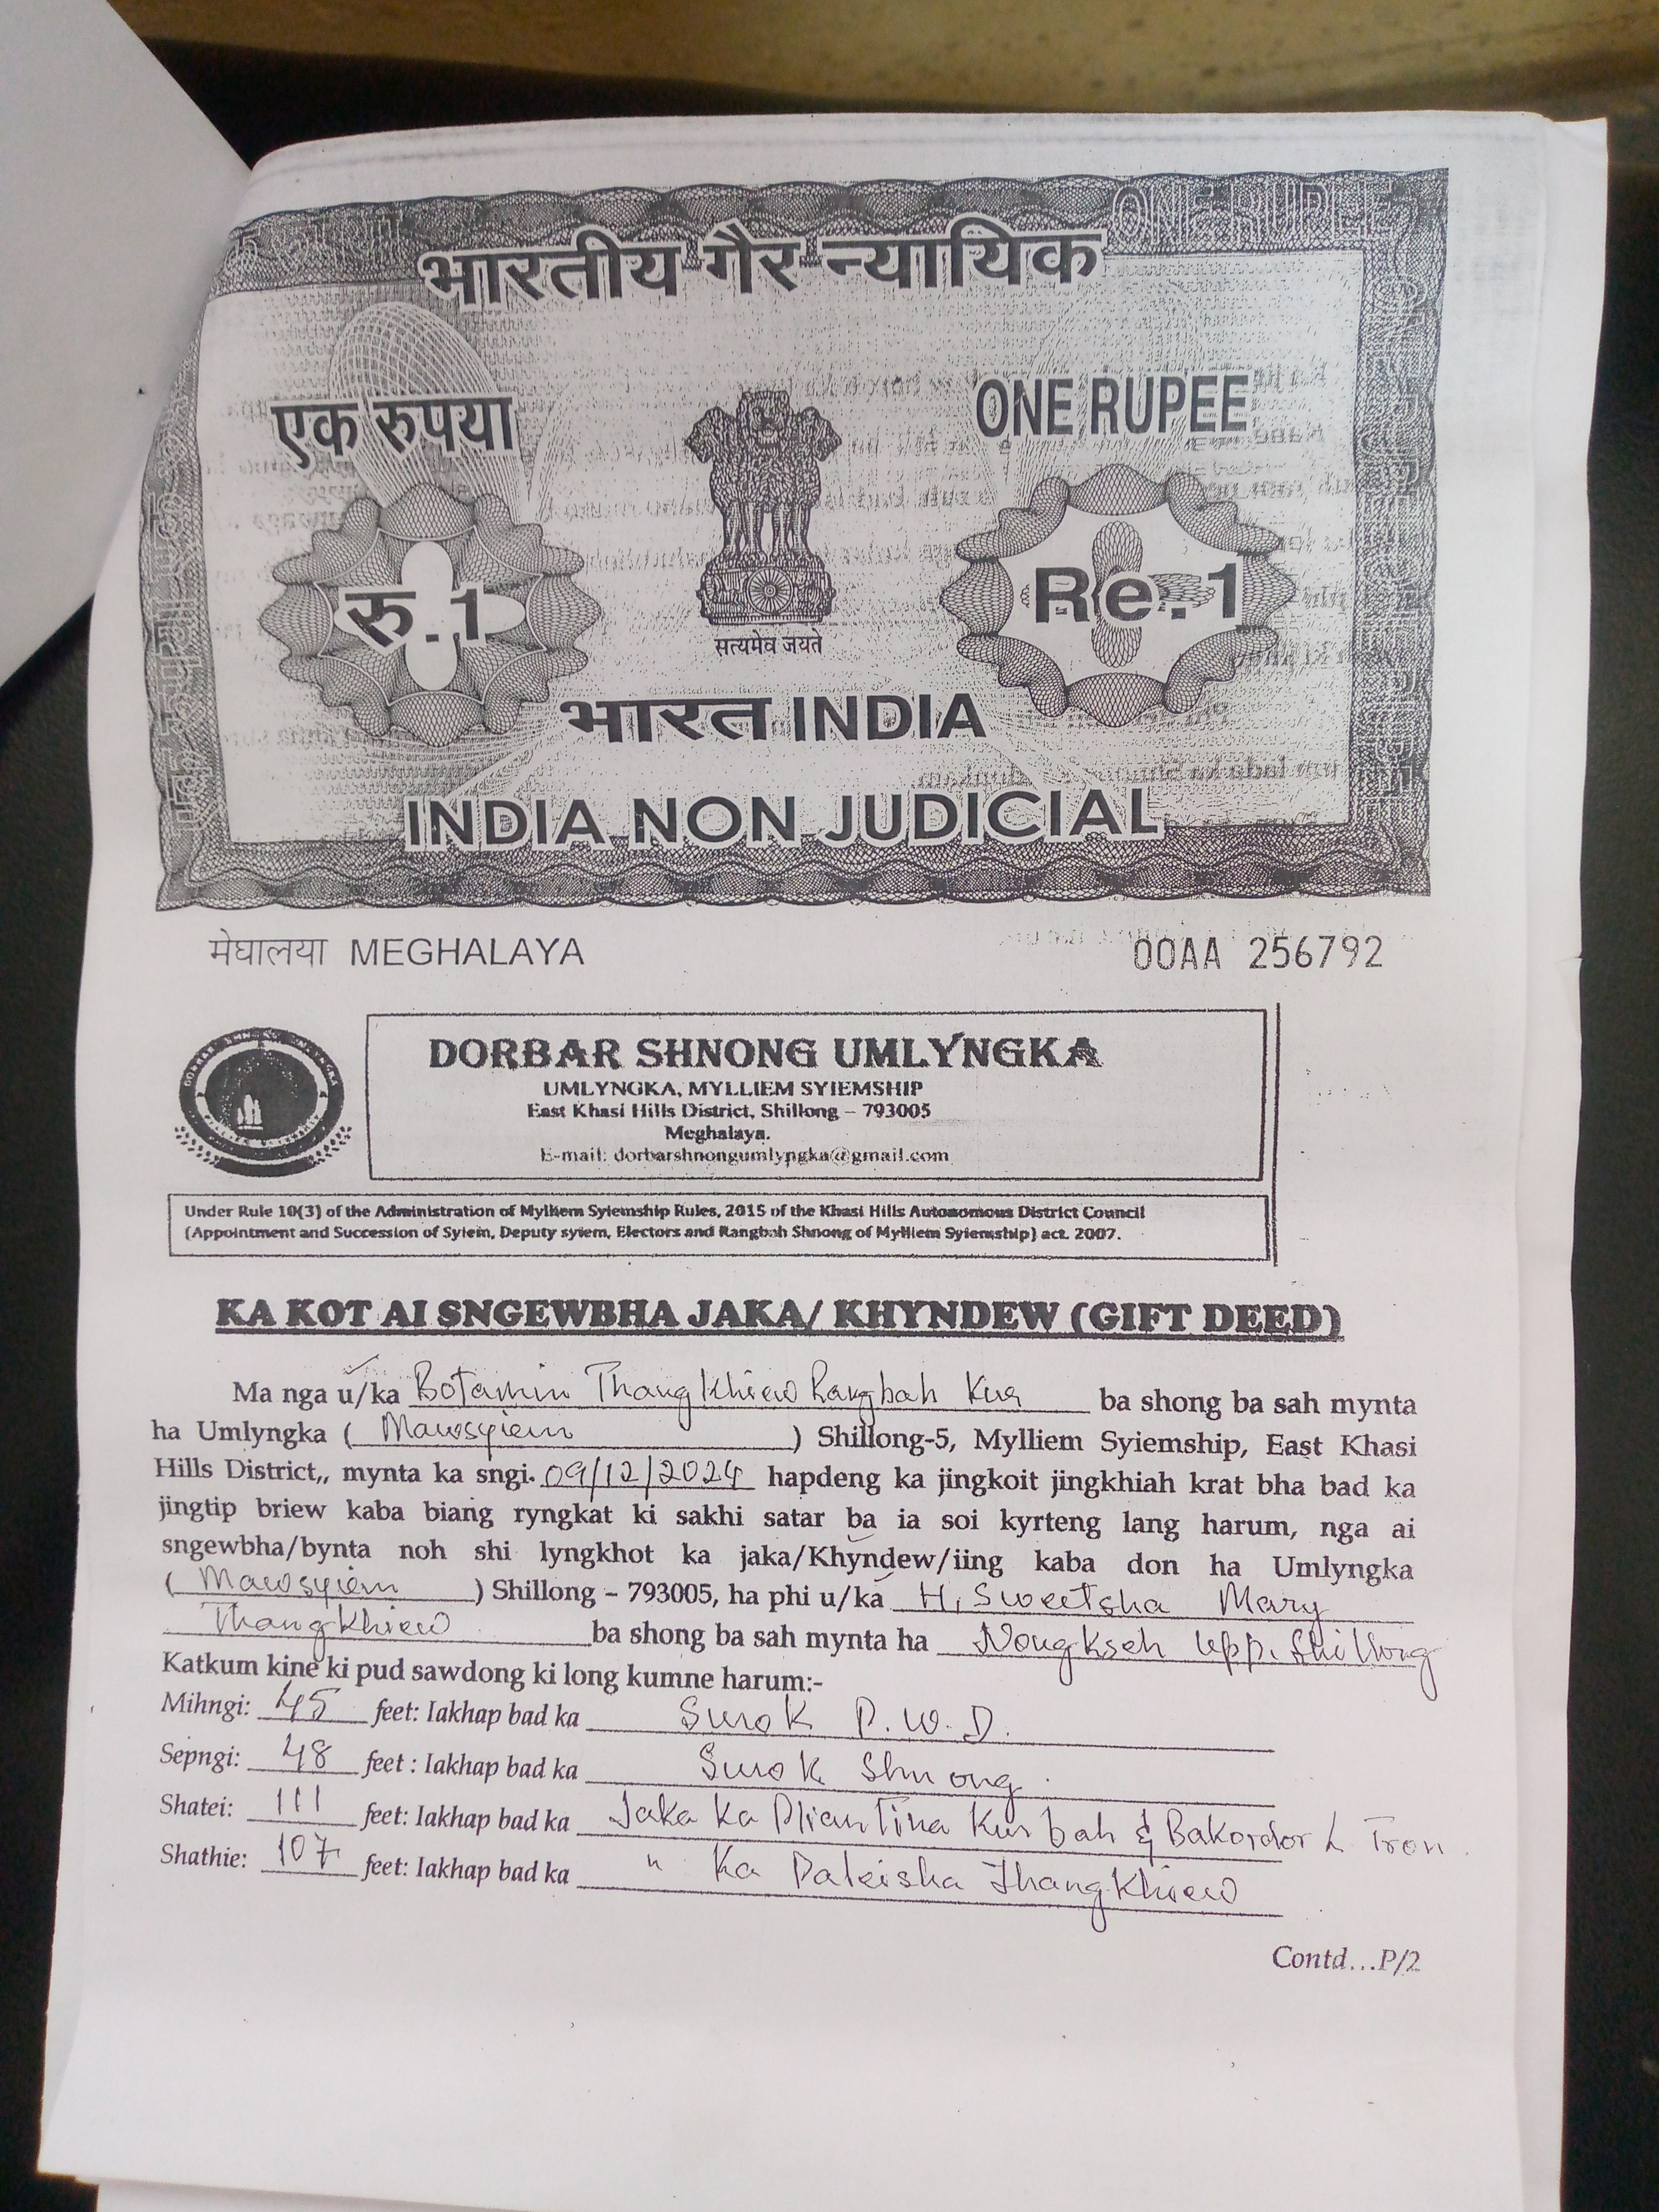 भारतीय गैर न्यायिक
एक रुपया
ONE RUPEE
रु.1
Re.1
सत्यमेव जयते
भारत INDIA
INDIA NON JUDICIAL
मेघालया MEGHALAYA
00AA 256792
DORBAR SHNONG UMLYNGKA
UMLYNGKA, MYLLIEM SYIEMSHIP
East Khasi Hills District, Shillong – 793005
Meghalaya.
E-mail: dorbarshnongumlyngka@gmail.com
Under Rule 10(3) of the Administration of Mylliem Syiemship Rules, 2015 of the Khasi Hills Autonomous District Council
(Appointment and Succession of Syiem, Deputy syiem, Electors and Rangbah Shnong of Mylliem Syiemship) act. 2007.
KA KOT AI SNGEWBHA JAKA/ KHYNDEW (GIFT DEED)
Ma nga u/ka Botamin Thangkhiew Rangbah Kur ba shong ba sah mynta
ha Umlyngka ( Mawsyiem ) Shillong-5, Mylliem Syiemship, East Khasi
Hills District,, mynta ka sngi. 09/12/2024 hapdeng ka jingkoit jingkhiah krat bha bad ka
jingtip briew kaba biang ryngkat ki sakhi satar ba ia soi kyrteng lang harum, nga ai
sngewbha/bynta noh shi lyngkhot ka jaka/Khyndew/iing kaba don ha Umlyngka
( Mawsyiem ) Shillong – 793005, ha phi u/ka H, Sweetsha Mary
Thangkhiew ba shong ba sah mynta ha Nongkseh Upp. Shillong
Katkum kine ki pud sawdong ki long kumne harum:-
Mihngi: 45 feet: Iakhap bad ka Surok P.W.D.
Sepngi: 48 feet : Iakhap bad ka Surok Shnong.
Shatei: 111 feet: Iakhap bad ka Jaka ka Kurbah & Bakordor L Tron
Shathie: 107 feet: Iakhap bad ka " Ka Daleisha Thangkhiew
Contd...P/2